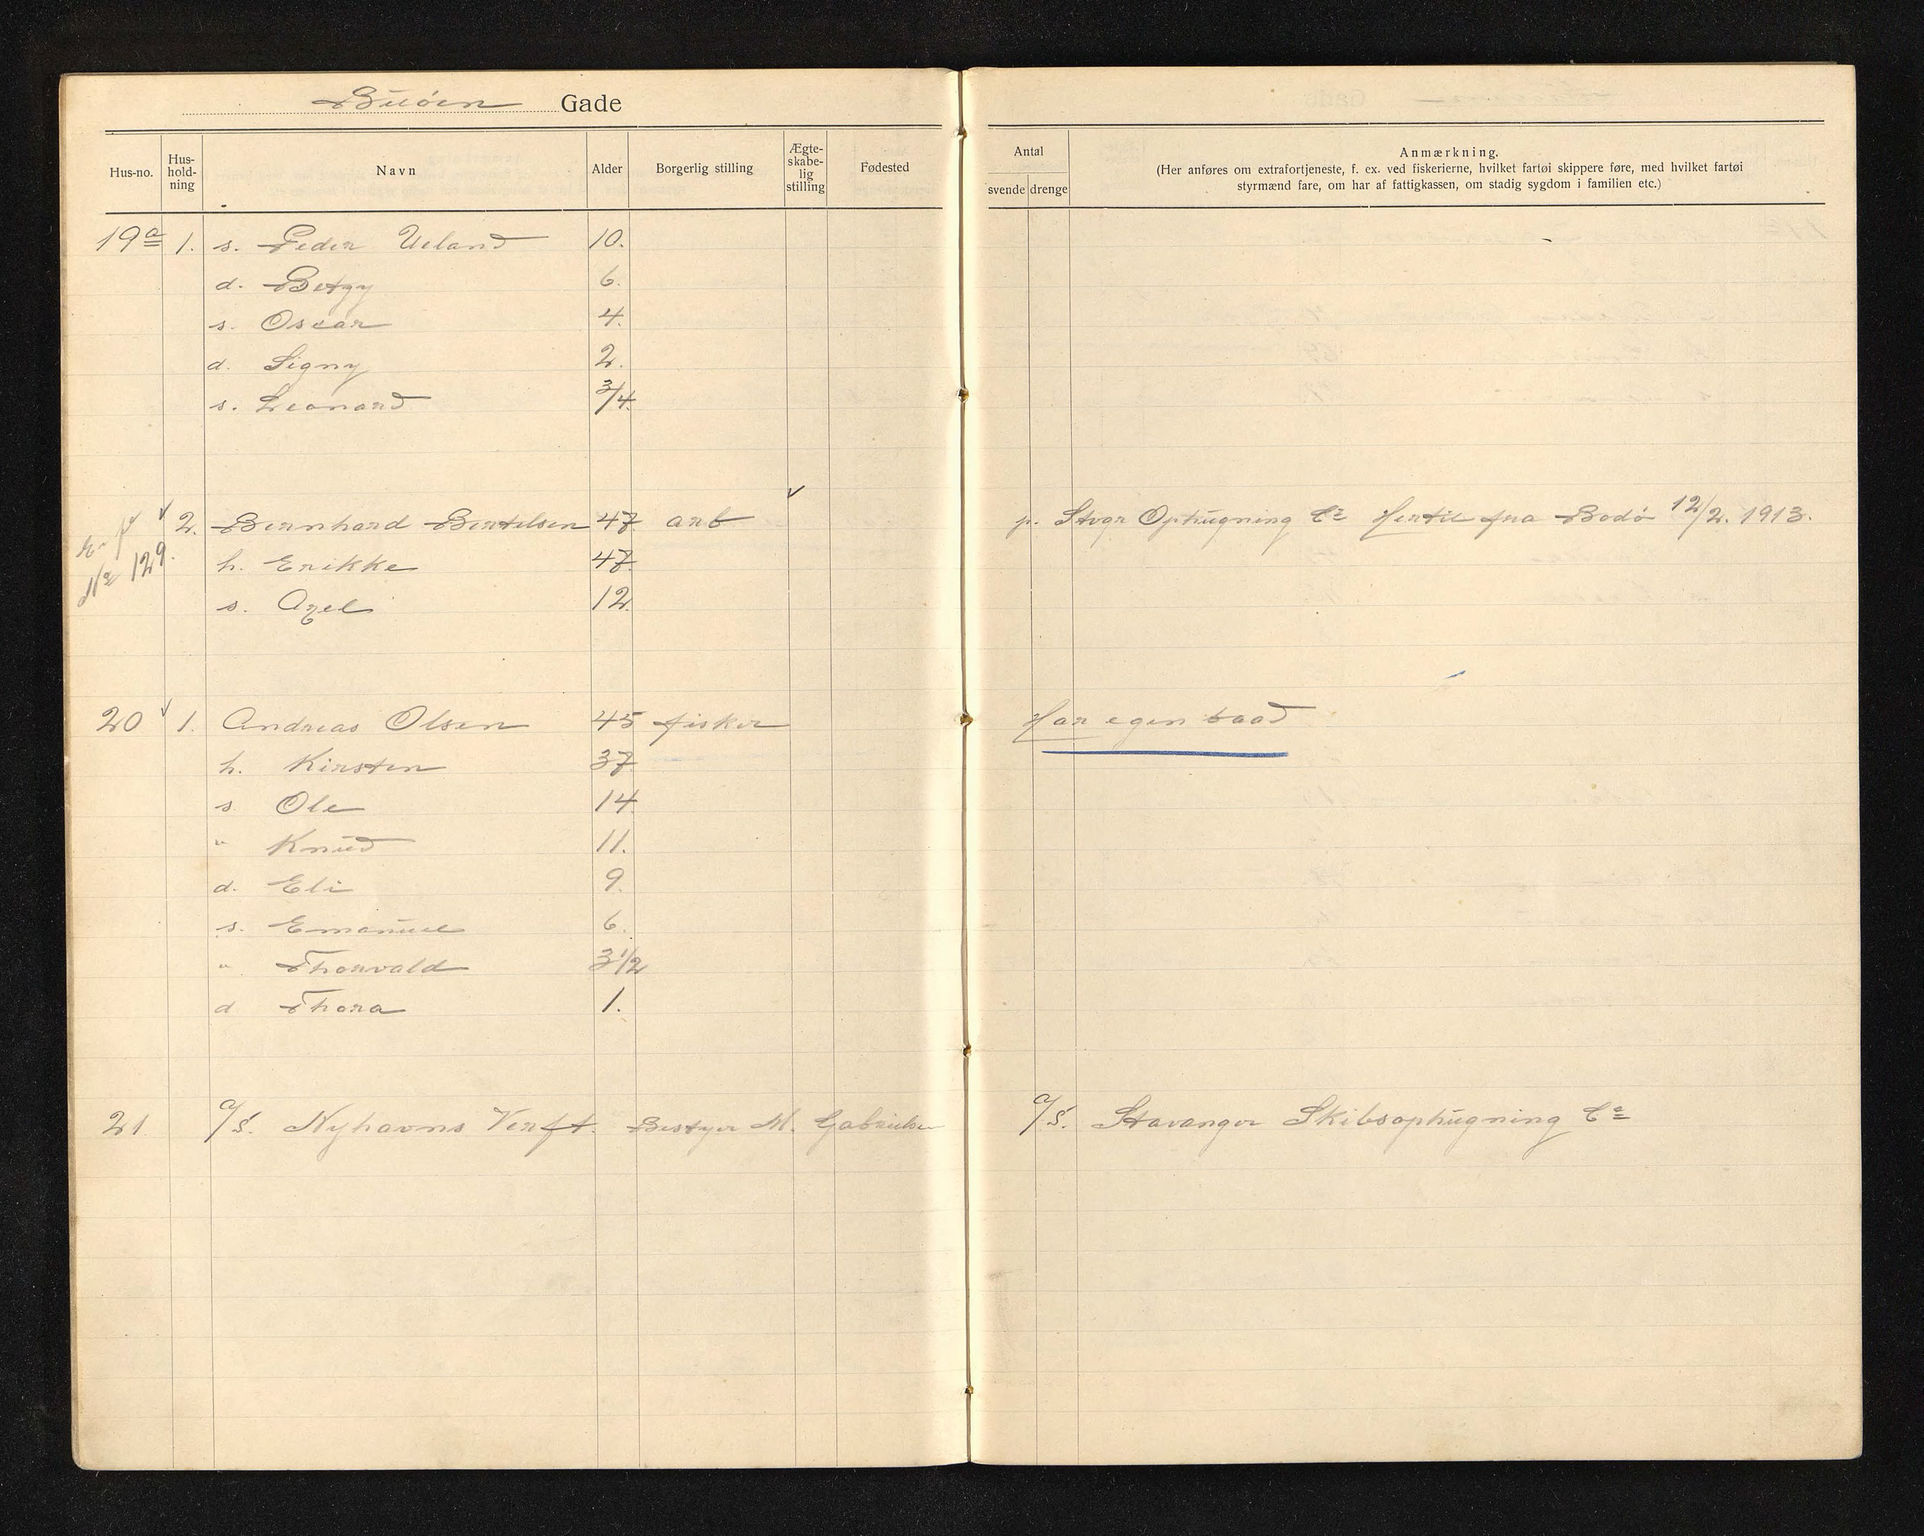 Buøen Gade
Hus-no. Hus-hold-ning Navn Alder Borgerlig stilling Ægte-skabe-lig stilling Fødested
Antal svende drenge
Anmærkning.
(Her anføres om extrafortjeneste, f. ex. ved fiskerierne, hvilket fartøi skippere føre, med hvilket fartøi
styrmænd fare, om har af fattigkassen, om stadig sygdom i familien etc.)
19a 1. s. Peder Ueland 10.
d. Betzy 6.
s. Oscar 4.
d. Signy 2.
s. Leonard 3/4.
2. Bernhard Bertelsen 47 arb p. Stvgr Ophugning Co Hertil fra Bodø 12/2. 1913.
No 129.
h. Erikke 47.
s. Axel 12.
20 1. Andreas Olsen 45 fisker Har egen baad
h. Kirsten 37.
s. Ole 14.
" Knud 11.
d. Eli 9.
s. Emanuel 6.
" Thorvald 3 1/2
d Thora 1.
21 A/S. Nyhavns Verft. Bestyer M. Gabrielsen A/S. Stavanger Skibsophugning Co